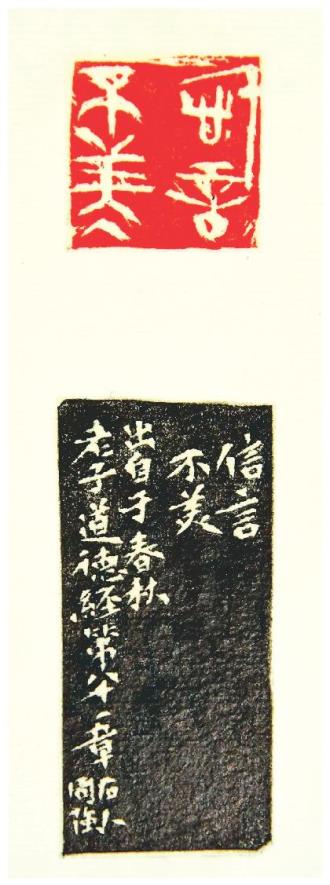 信言
不美
信言
不美
出自于春秋
老子道德經第八十一章